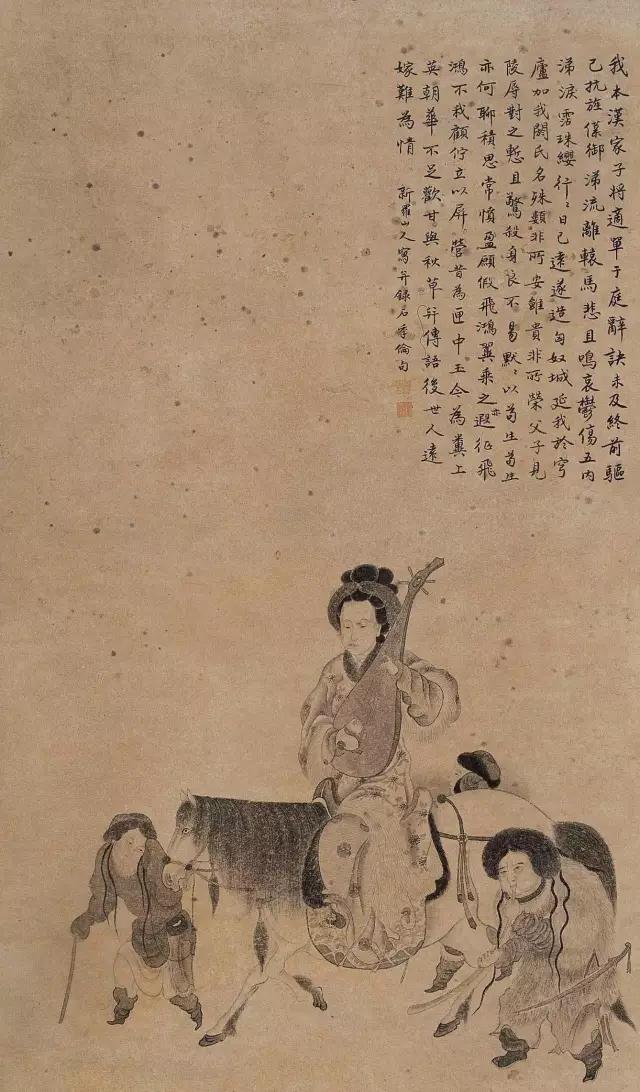 我本漢家子將適單于庭辭訣未及終前驅
已抗旌僕御涕流離轅馬悲且鳴哀鬱傷五內
涕淚霑珠纓行〻日已遠遂造匈奴城延我於穹
廬加我閼氏名殊類非所安雖貴非所榮父子見
陵辱對之慙且驚殺身良不易默〻以苟生苟生
亦何聊積思常憤盈願假飛鴻翼乘之遐征飛
鴻不我顧佇立以屏營昔為匣中玉今為糞上
英朝華不足歡甘與秋草并傳語後世人遠
嫁難為情
新羅山人寫并錄石季倫句